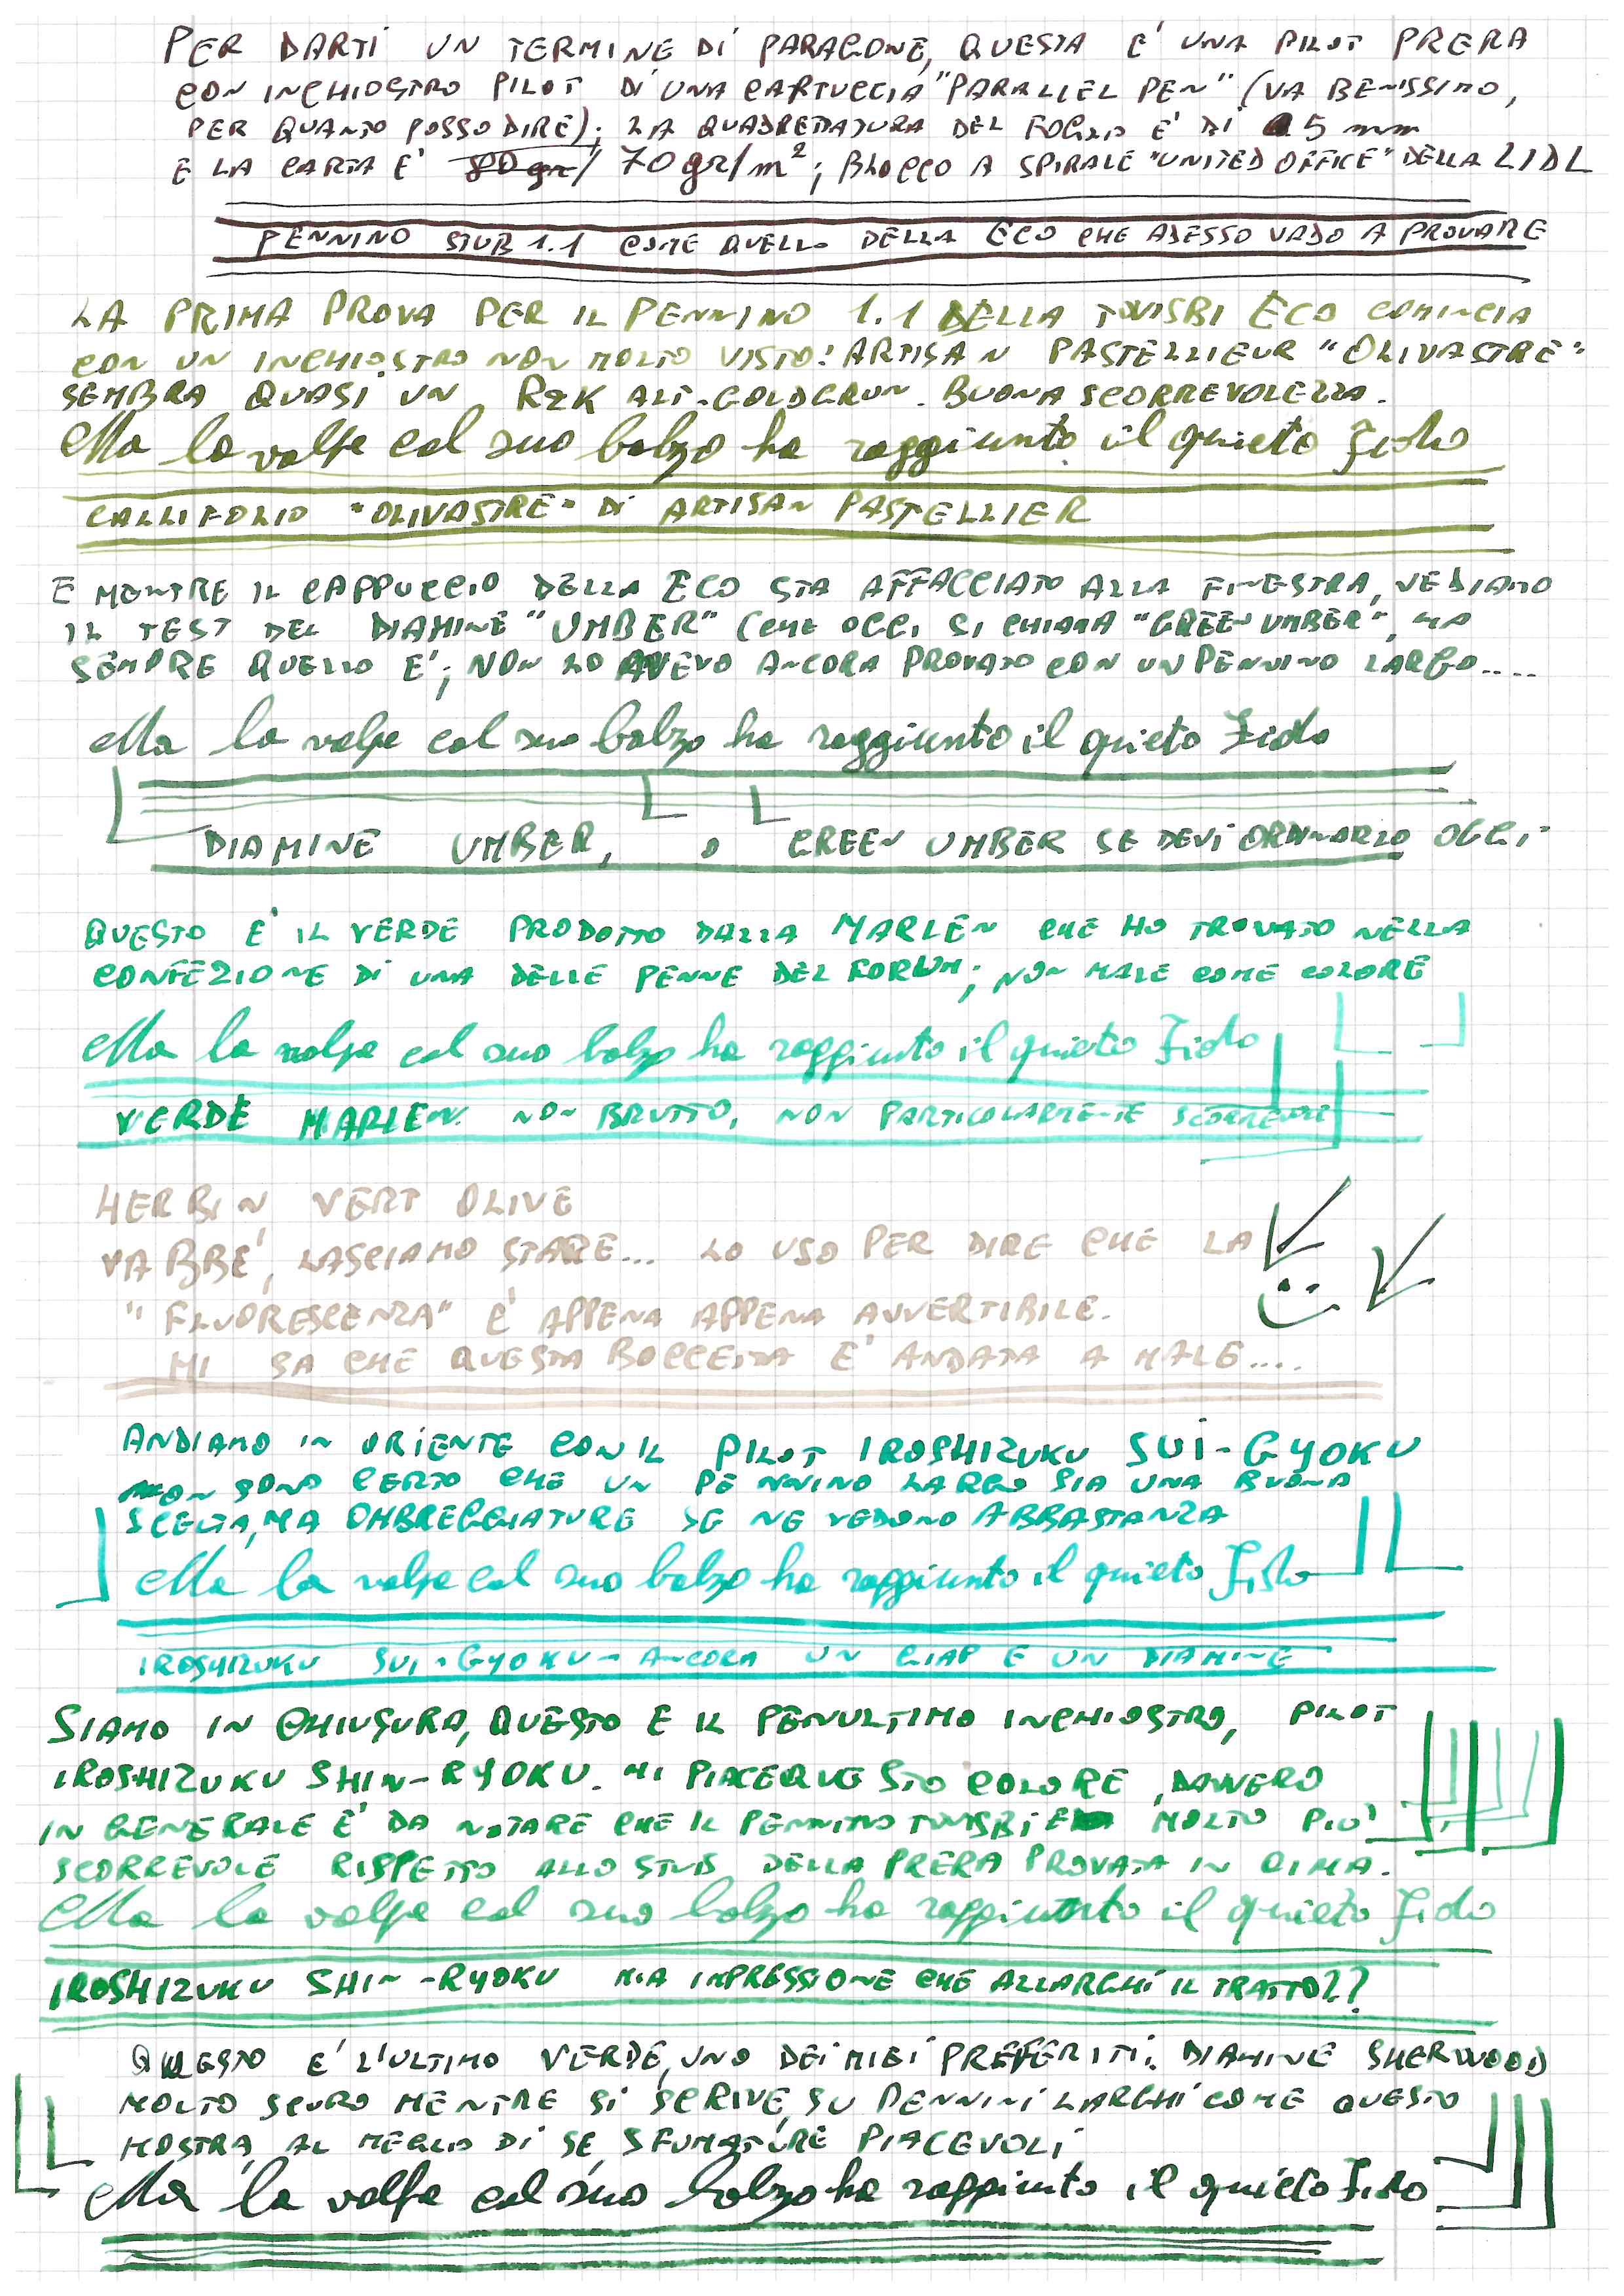 PER DARTI UN TERMINE DI PARAGONE, QUESTA E' UNA PILOT PRERA
CON INCHIOSTRO PILOT DI UNA CARTUCCIA "PARALLEL PEN" (VA BENISSIMO,
PER QUANTO POSSO DIRE); LA QUADRETTATURA DEL FOGLIO E' DI 5 mm
E LA CARTA E' 80gr/ 70gr/m²; BLOCCO A SPIRALE "UNITED OFFICE" DELLA LIDL
PENNINO STUB 1.1 COME QUELLO DELLA ECO CHE ADESSO VADO A PROVARE
LA PRIMA PROVA PER IL PENNINO 1.1 DELLA TWSBI ECO COMINCIA
CON UN INCHIOSTRO NON MOLTO VISTO: ARTISAN PASTELLIEUR "OLIVASTRE"
SEMBRA QUASI UN R&K ALT-GOLDGRUN. BUONA SCORREVOLEZZA.
Ma la volpe col suo balzo ha raggiunto il quieto Fido
CALLIFOLIO "OLIVASTRE" DI ARTISAN PASTELLIER
E MENTRE IL CAPPUCCIO DELLA ECO STA AFFACCIATO ALLA FINESTRA, VEDIAMO
IL TEST DEL DIAMINE "UMBER" (CHE OGGI SI CHIAMA "GREEN UMBER", MA
SEMPRE QUELLO E'; NON LO AVEVO ANCORA PROVATO CON UN PENNINO LARGO....
Ma la volpe col suo balzo ha raggiunto il quieto Fido
DIAMINE UMBER, O GREEN UMBER SE DEVI ORDINARLO OGGI
QUESTO E' IL VERDE PRODOTTO DALLA MARLEN CHE HO TROVATO NELLA
CONFEZIONE DI UNA DELLE PENNE DEL FORUM; NON MALE COME COLORE
Ma la volpe col suo balzo ha raggiunto il quieto Fido
VERDE MARLEN. NON BRUTTO, NON PARTICOLARMENTE SCORREVOLE
HERBIN VERT OLIVE
VABBE', LASCIAMO STARE... LO USO PER DIRE CHE LA
"FLUORESCENZA" E' APPENA APPENA AVVERTIBILE.
MI SA CHE QUESTA BOCCETTA E' ANDATA A MALE....
ANDIAMO IN ORIENTE CON IL PILOT IROSHIZUKU SUI-GYOKU
NON SONO CERTO CHE UN PENNINO LARGO SIA UNA BUONA
SCELTA, MA OMBREGGIATURE SE NE VEDONO ABBASTANZA
Ma la volpe col suo balzo ha raggiunto il quieto Fido
IROSHIZUKU SUI-GYOKU - ANCORA UN GIAP E UN DIAMINE
SIAMO IN CHIUSURA, QUESTO E IL PENULTIMO INCHIOSTRO, PILOT
IROSHIZUKU SHIN-RYOKU. MI PIACE QUESTO COLORE, DAVVERO
IN GENERALE E' DA NOTARE CHE IL PENNINO TWSBI E' MOLTO PIU'
SCORREVOLE RISPETTO ALLO STUB DELLA PRERA PROVATA IN CIMA.
Ma la volpe col suo balzo ha raggiunto il quieto Fido
IROSHIZUKU SHIN-RYOKU MIA IMPRESSIONE CHE ALLARGHI IL TRATTO??
QUESTO E' L'ULTIMO VERDE, UNO DEI MIEI PREFERITI. DIAMINE SHERWOOD
MOLTO SCURO MENTRE SI SCRIVE, SU PENNINI LARGHI COME QUESTO
MOSTRA AL MEGLIO DI SE, SFUMATURE PIACEVOLI
Ma la volpe col suo balzo ha raggiunto il quieto Fido